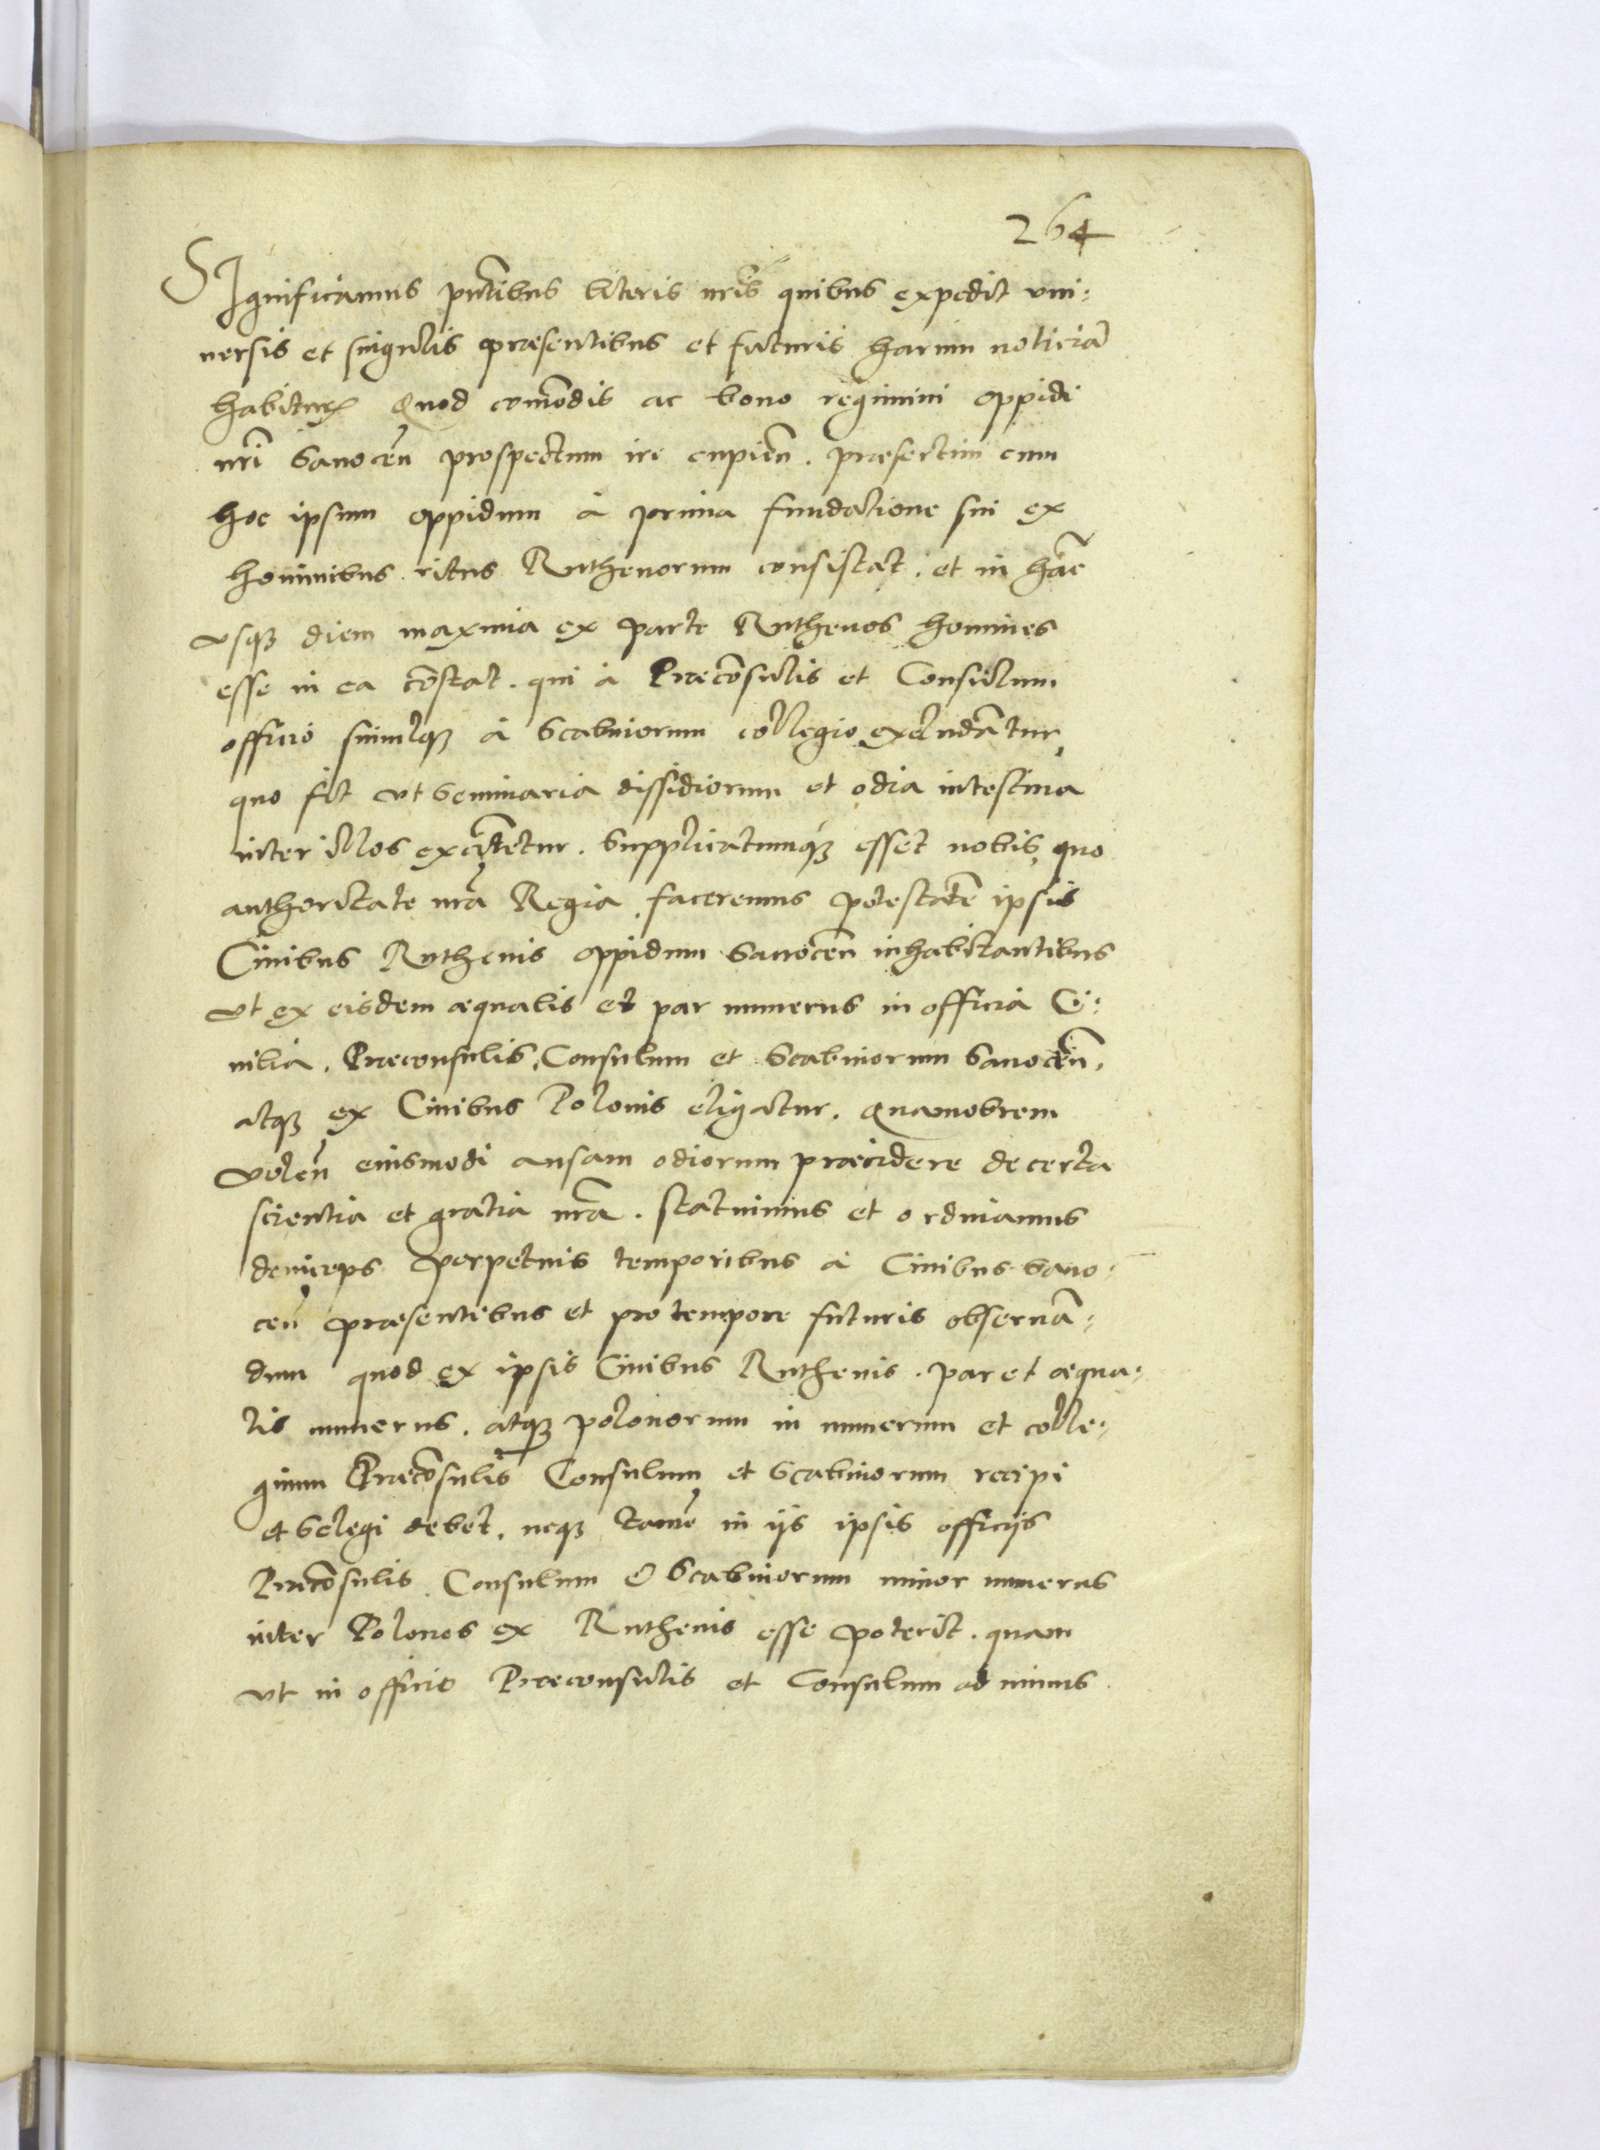 264
SIgnificamus pntibus literis nris quibus expedit uni:
uersis et singulis præsentibus et futuris harum noticiã
habitur Quod comodis ac bono regimini oppidi
nri Sanocen prospectum ire cupien. præsertim cum
hoc ipsum oppidum à prima fundatione sui ex
hominibus ritus Ruthenorum consistat. et in hãc
usq diem maxima ex parte Ruthenos homines
esse in ea cõstat. qui à Præcõsulis et Consulum
officio simulq à Scabinorum collegio excludãtur,
quo fit ut seminaria dissidiorum et odia intestina
inter illos excitẽtur. Supplicatumq esset nobis, quo
authoritate nra Regia faceremus potestatẽ ipsis
Ciuibus Ruthenis oppidum Sanocen inhabitantibus
ut ex eisdem æqualis et par numerus in officia Ci:
uilia, Præconsulis, Consulum et Scabinorum Sanocen,
atq ex Ciuibus Polonis eligatur. Quamobrem
volen eiusmodi ansam odiorum præcidere de certa
scientia et gratia nra. statuimus et ordinamus
deinceps perpetuis temporibus à Ciuibus Sano:
cen præsentibus et pro tempore futuris obseruã:
dum quod ex ipsis Ciuibus Ruthenis. par et æqua:
lis numerus. atq polonorum in numerum et colle:
gium Præcõsulis Consulum et Scabinorum recipi
et Selegi debet. neq tamẽ in ijs ipsis officijs
Præcõsulis Consulum & Scabinorum minor numerus
inter Polonos ex Ruthenis esse poterit. quam
ut in officio Præconsulis et Consulum ad minus